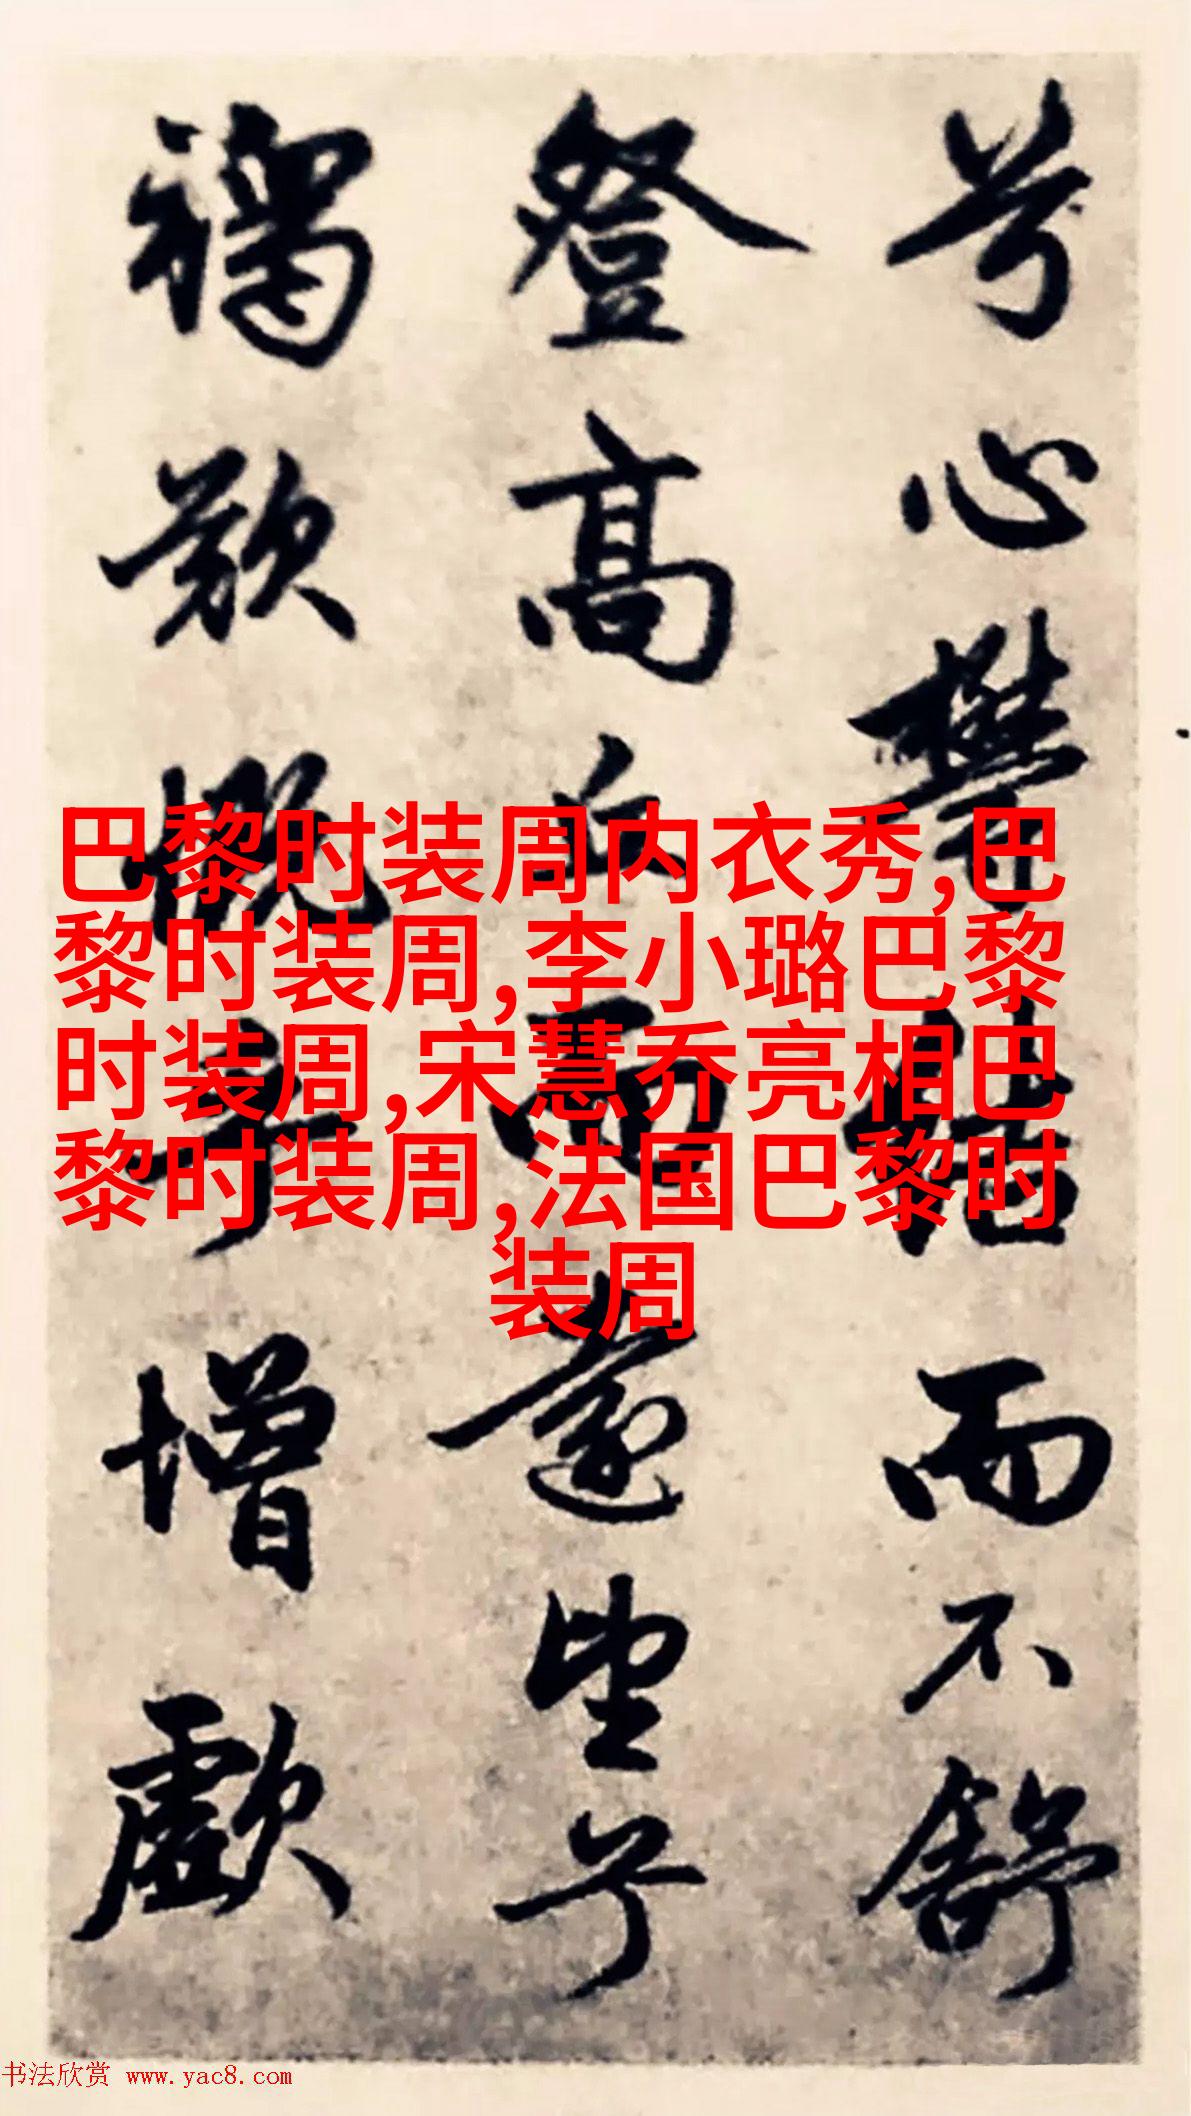 兮心鬱結而不舒
登高丘而遠望兮
褐欷慨兮增歔
巴黎时装周内衣秀,巴
黎时装周,李小璐巴黎
时装周,宋慧乔亮相巴
黎时装周,法国巴黎时
装周
书法欣赏 www.yac8.com